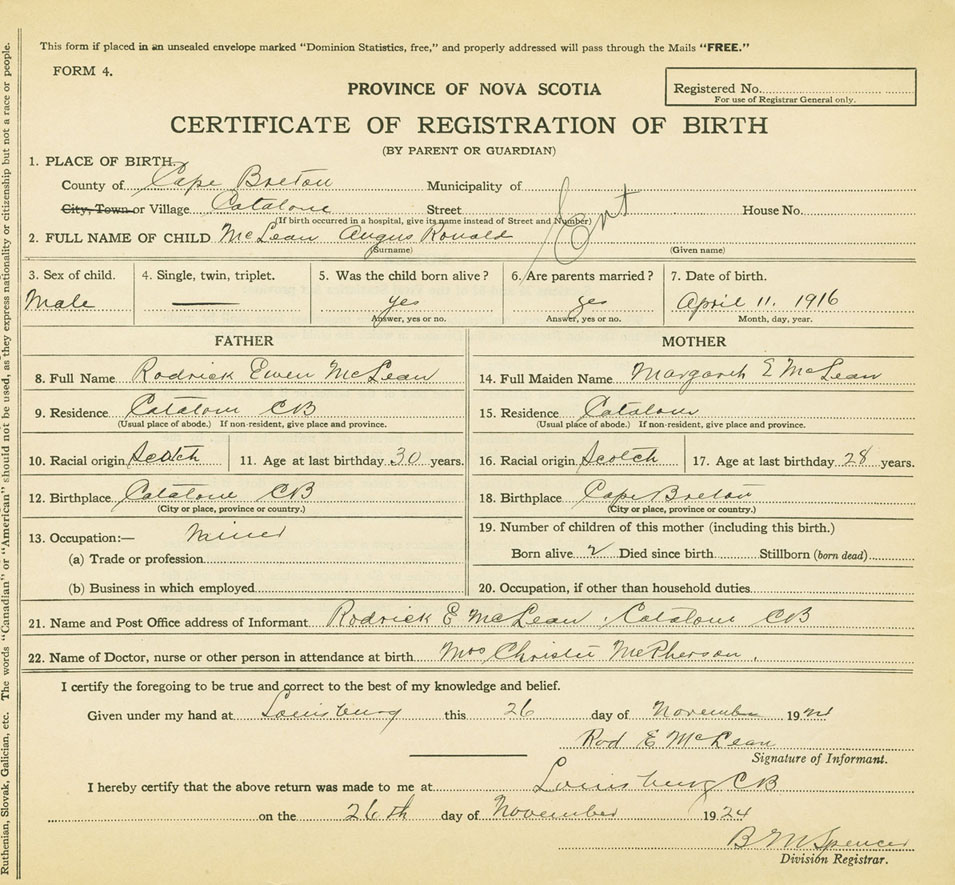 This form if placed in an unsealed envelope marked "Dominion Statistics, free," and properly addressed will pass through the Mails "FREE."
FORM 4.
PROVINCE OF NOVA SCOTIA
Registered No.
For use of Registrar General only.
CERTIFICATE OF REGISTRATION OF BIRTH
(BY PARENT OR GUARDIAN)
1. PLACE OF BIRTH.
County of Cape Breton Municipality of
City, Town or Village Catalone Street House No.
(If birth occurred in a hospital, give its name instead of Street and Number)
Ent
2. FULL NAME OF CHILD McLean Angus Ronald
(Surname) (Given name)
3. Sex of child. 4. Single, twin, triplet. 5. Was the child born alive? 6. Are parents married? 7. Date of birth.
Male yes yes April 11. 1916
Answer, yes or no. Answer, yes or no. Month, day, year.
FATHER MOTHER
8. Full Name Rodrick Ewen McLean 14. Full Maiden Name Margaret E McLean
9. Residence Catalone CB 15. Residence Catalone
(Usual place of abode.) If non-resident, give place and province. (Usual place of abode.) If non-resident, give place and province.
10. Racial origin Scotch 11. Age at last birthday 30 years. 16. Racial origin Scotch 17. Age at last birthday 28 years.
12. Birthplace Catalone CB 18. Birthplace Cape Breton
(City or place, province or country.) (City or place, province or country.)
13. Occupation:— Miner 19. Number of children of this mother (including this birth.)
(a) Trade or profession Born alive 2 Died since birth Stillborn (born dead)
(b) Business in which employed 20. Occupation, if other than household duties
21. Name and Post Office address of Informant Rodrick E McLean, Catalone CB
22. Name of Doctor, nurse or other person in attendance at birth Mrs Christie McPherson.
I certify the foregoing to be true and correct to the best of my knowledge and belief.
Given under my hand at Louisburg this 26 day of November 19
Rod E McLean
Signature of Informant.
I hereby certify that the above return was made to me at Louisburg CB
on the 26th day of November 1924
B M Spencer
Division Registrar.
Ruthenian, Slovak, Galician, etc. The words "Canadian" or "American" should not be used, as they express nationality or citizenship but not a race or people.